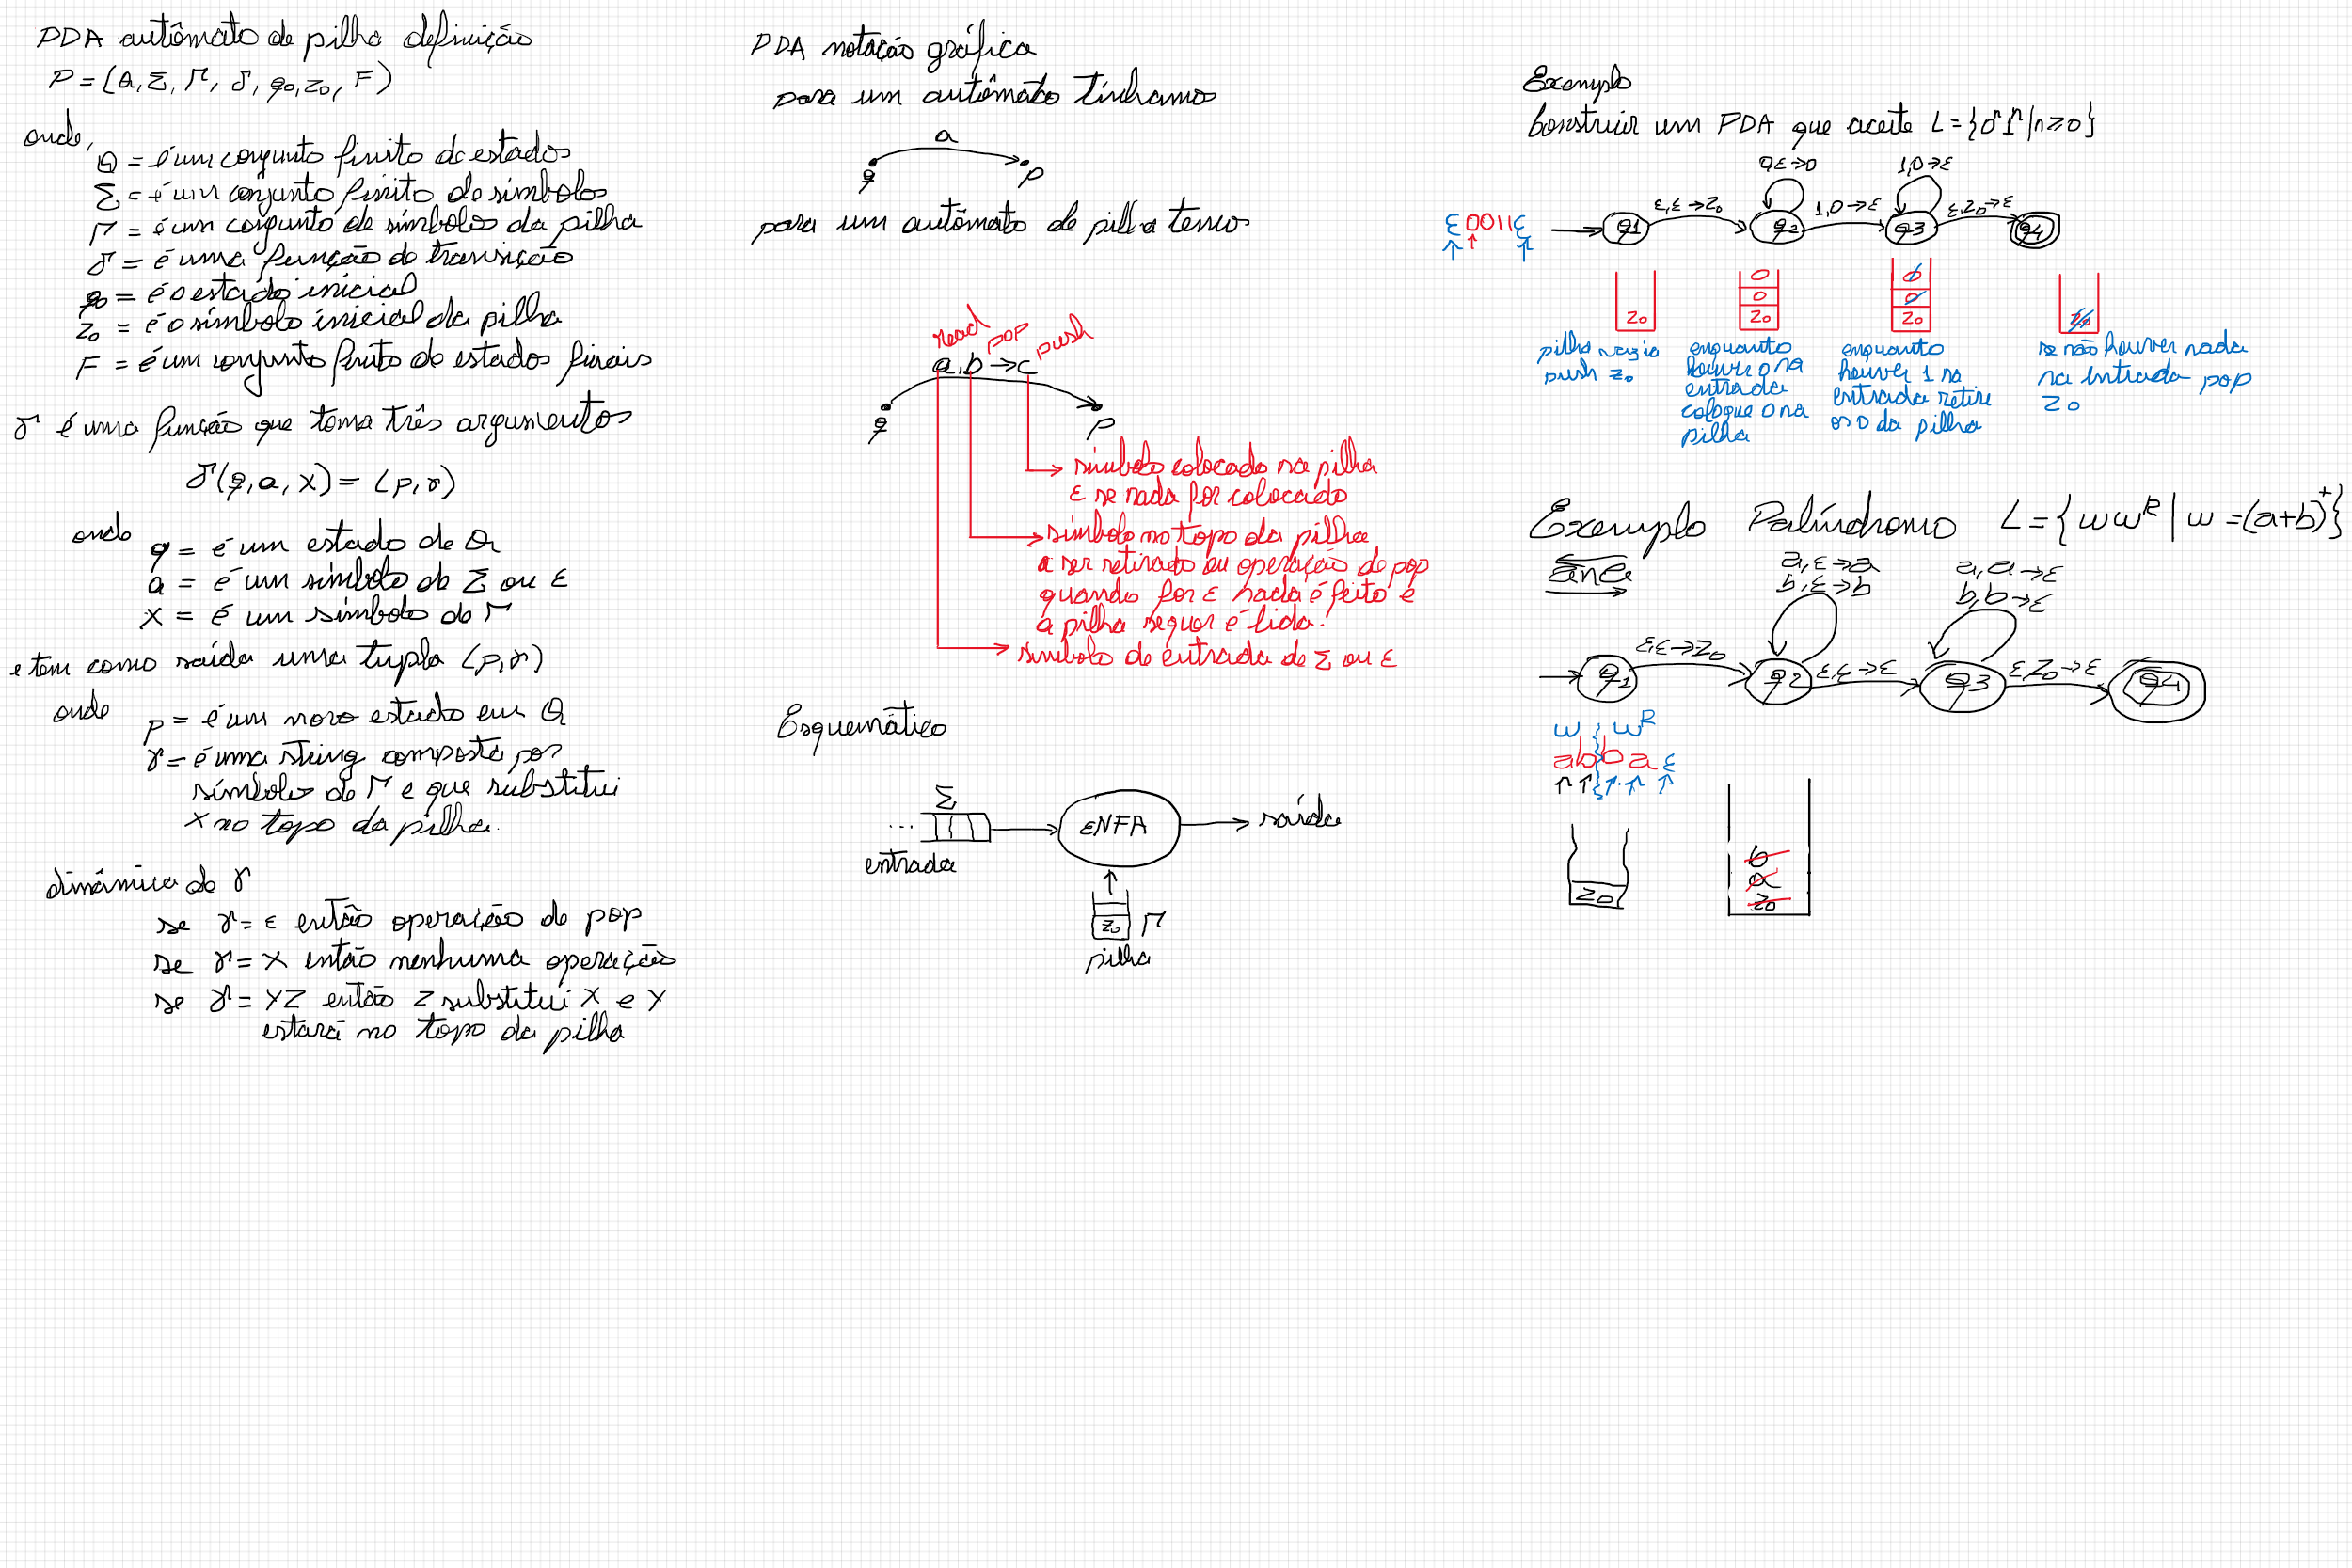 PDA autômato de pilha definição
P = (Q, Σ, Γ, δ, q0, z0, F)
onde,
Q = é um conjunto finito de estados
Σ = é um conjunto finito de símbolos
Γ = é um conjunto de símbolos da pilha
δ = é uma função de transição
q0 = é o estado inicial
z0 = é o símbolo inicial da pilha
F = é um conjunto finito de estados finais
δ é uma função que toma três argumentos
δ(q, a, X) = (p, γ)
onde
q = é um estado de Q
a = é um símbolo de Σ ou ε
X = é um símbolo de Γ
e tem como saída uma tupla (p, γ)
onde
p = é um novo estado em Q
γ = é uma string composta por
símbolos de Γ e que substitui
X no topo da pilha.
dinâmica de γ
se γ = ε então operação de pop
se γ = X então nenhuma operação
se γ = YZ então Z substitui X e Y
estará no topo da pilha
PDA notação gráfica
para um autômato tínhamos
a
q
p
para um autômato de pilha temos
read pop push
a, b → c
q
p
símbolo colocado na pilha
ε se nada for colocado
símbolo no topo da pilha
a ser retirado ou operação de pop
quando for ε nada é feito e
a pilha sequer é lida.
símbolo de entrada de Σ ou ε
Esquemático
Σ
...
entrada
εNFA
saída
z0
Γ
pilha
Exemplo
Construir um PDA que aceite L = {0ⁿ1ⁿ | n ≥ 0}
0,ε→0
1,0→ε
ε,ε→z0
1,0→ε
ε,z0→ε
ε0011ε
q1
q2
q3
q4
z0
0
0
z0
0
0
z0
z0
pilha vazia
push z0
enquanto
houver 0 na
entrada
coloque 0 na
pilha
enquanto
houver 1 na
entrada retire
os 0 da pilha
se não houver nada
na entrada pop
z0
Exemplo Palíndromo L = {wwᴿ | w = (a+b)⁺}
ana
a,ε→a
b,ε→b
a,a→ε
b,b→ε
ε,ε→z0
ε,ε→ε
ε,z0→ε
q1
q2
q3
q4
w wᴿ
abbaε
z0
b
a
z0